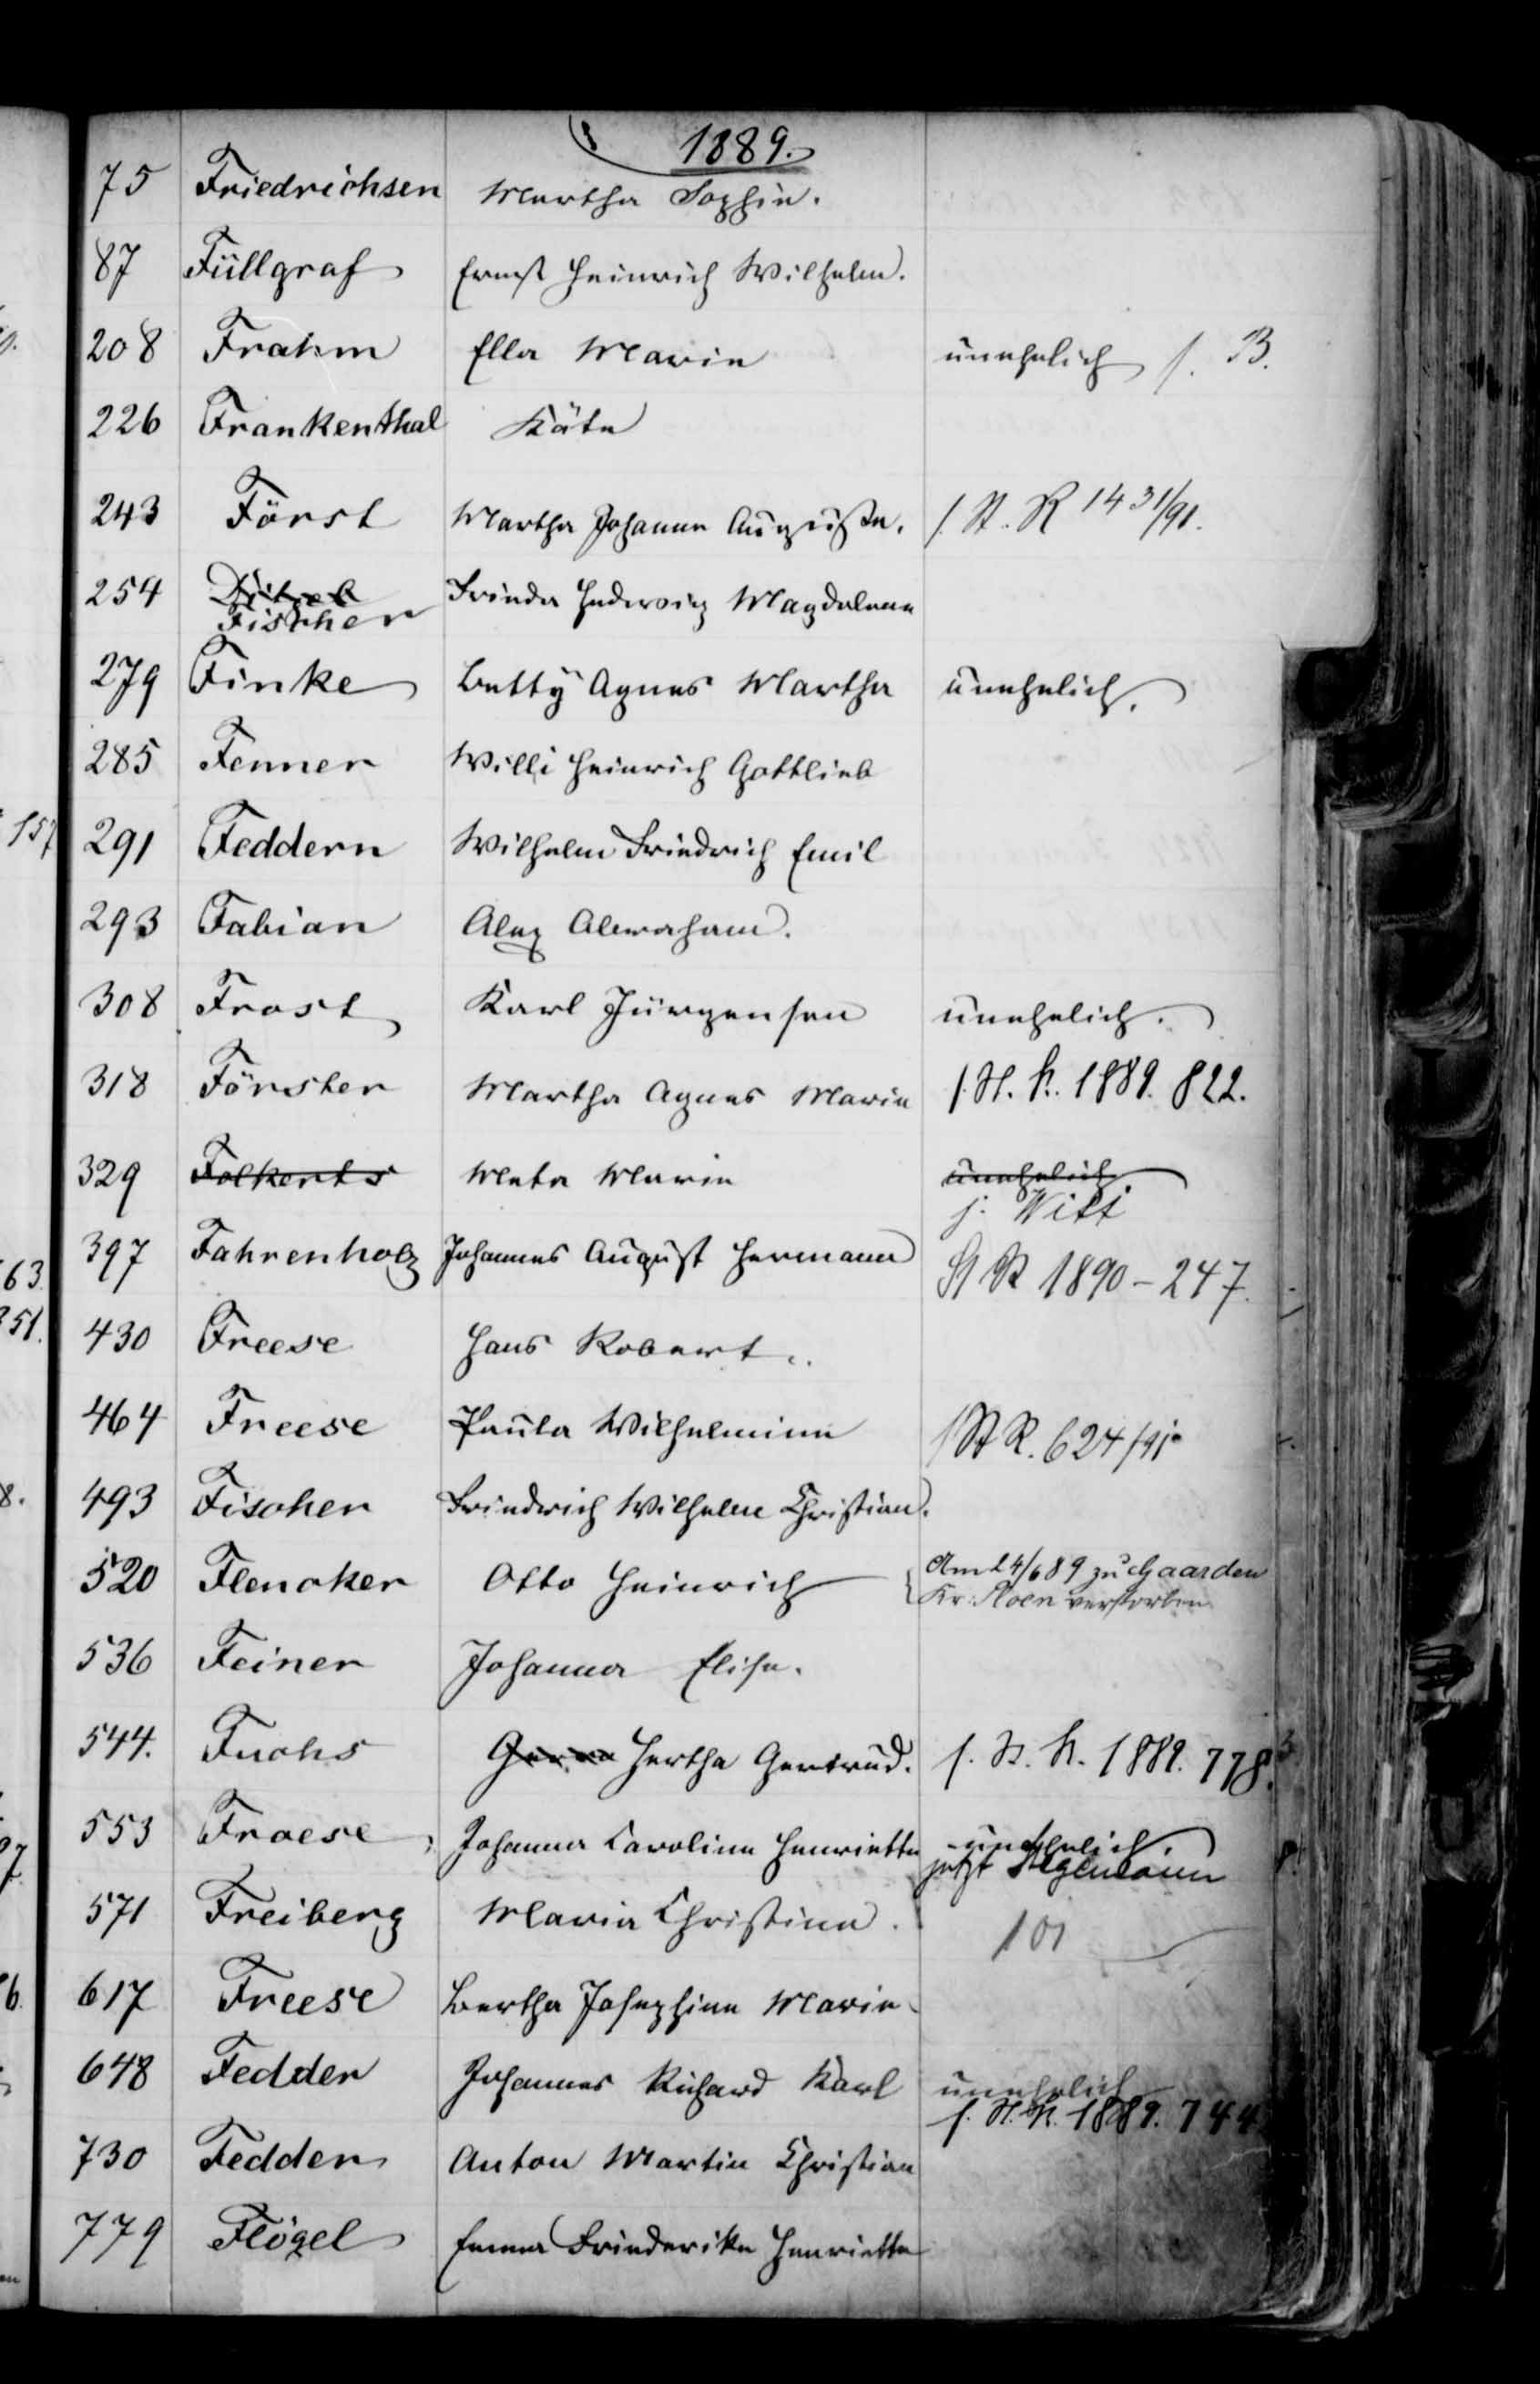 1889.
75 Friedrichsen Martha Sophie.
87 Füllgraf Ernst Heinrich Wilhelm.
208 Frahm Ella Marie unehelich s. B.
226 Frankenthal Käte
243 Först Martha Johanne Auguste. s. St. R 1431/91.
254 Frieda Hedwig Magdalena
Fischer
279 Finke Betty Agnes Martha unehelich.
285 Fenner Willi Heinrich Gottlieb
291 Feddern Wilhelm Friedrich Emil
293 Fabian Alex Abraham.
308 Frost Karl Jürgensen unehelich.
318 Förster Martha Agnes Marie s. St. R. 1889. 822.
329 Folkerts Meta Marie unehelich
j. Witt
397 Fahrenholz Johannes August Hermann St R 1890 - 247.
430 Freese Hans Robert.
464 Freese Paula Wilhelmine s St R. 624/91
493 Fischer Friedrich Wilhelm Christian.
520 Flencker Otto Heinrich Am 24/6 89 zu Gaarden
Kr. Ploen verstorben
536 Feiner Johanna Elise.
544. Fuchs Hertha Gertrud. s. St. R. 1889. 778.
553 Froese Johanna Caroline Henriette unehelich
jetzt Stegemann
571 Freiberg Maria Christine. 101
617 Freese Bertha Josephine Marie
648 Fedder Johannes Richard Karl unehelich
s. St. R. 1889. 744
730 Fedder Anton Martin Christian
779 Flögel Emma Friederike Henriette